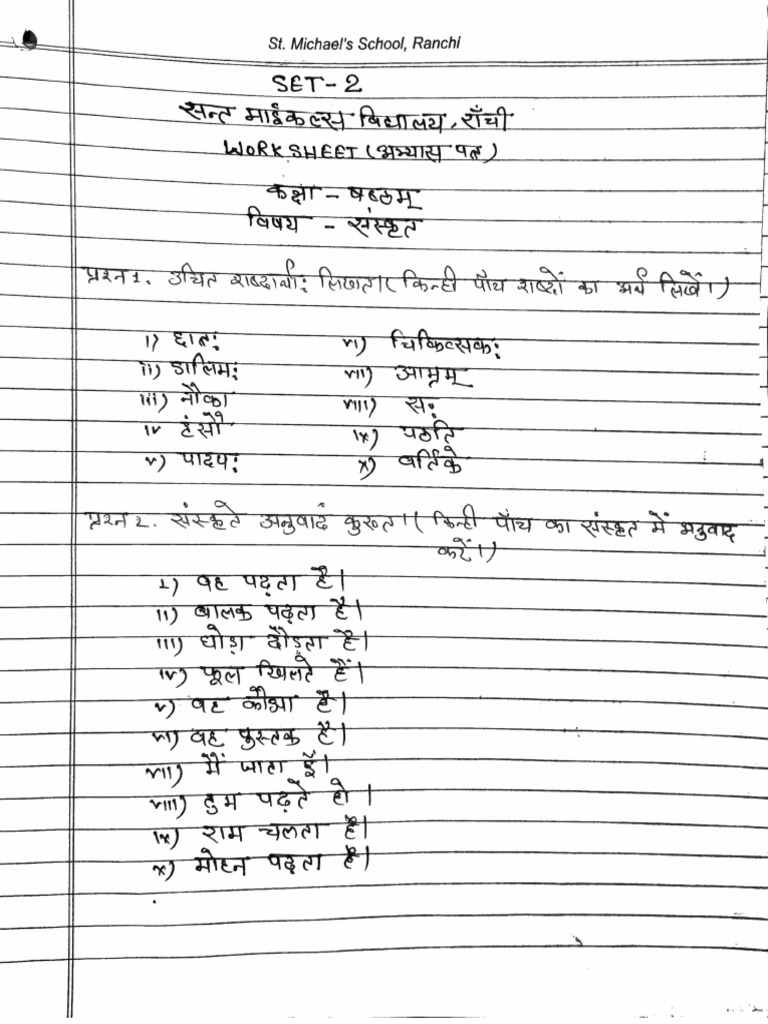 St. Michael's School, Ranchi
SET-2
सन्त माईकल्स विद्यालय, राँची
WORK SHEET (अभ्यास पत्र)
कक्षा - षष्ठम्
विषय - संस्कृत
प्रश्न 1. उचित शब्दार्थाः लिखत। (किन्ही पाँच शब्दों का अर्थ लिखें।)
i) छात्रः vi) चिकित्सकः
ii) डालिमः vii) आम्रम्
iii) नौका viii) सः
iv हंसौ ix) पठति
v) पादपः x) वर्तिके
प्रश्न 2. संस्कृते अनुवादं कुरुत। (किन्ही पाँच का संस्कृत में अनुवाद
करें।)
i) वह पढ़ता है।
ii) बालक पढ़ता है।
iii) घोड़ा दौड़ता है।
iv) फूल खिलते हैं।
v) वह कौआ है।
vi) वह पुस्तक है।
vii) मैं जाता हूँ।
viii) तुम पढ़ते हो।
ix) राम चलता है।
x) मोहन पढ़ता है।